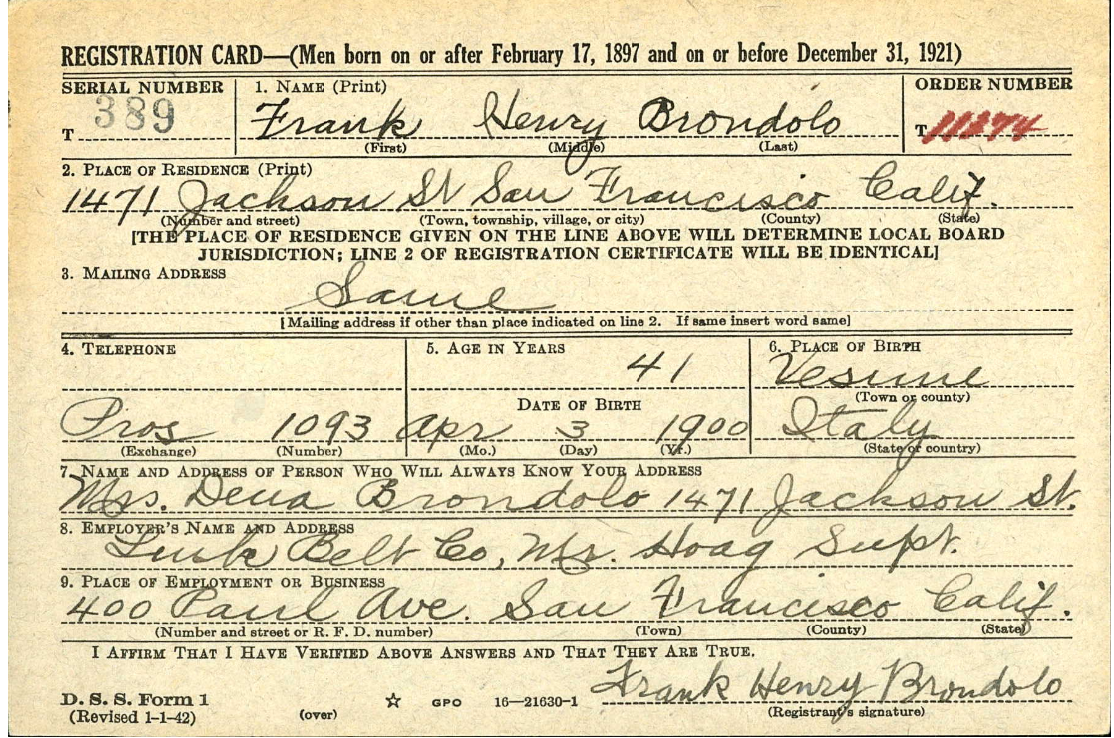 REGISTRATION CARD—(Men born on or after February 17, 1897 and on or before December 31, 1921)
SERIAL NUMBER
T 389
1. NAME (Print)
Frank Henry Brondolo
(First) (Middle) (Last)
ORDER NUMBER
T 11274
2. PLACE OF RESIDENCE (Print)
1471 Jackson St San Francisco Calif.
(Number and street) (Town, township, village, or city) (County) (State)
[THE PLACE OF RESIDENCE GIVEN ON THE LINE ABOVE WILL DETERMINE LOCAL BOARD
JURISDICTION; LINE 2 OF REGISTRATION CERTIFICATE WILL BE IDENTICAL]
3. MAILING ADDRESS
Same
[Mailing address if other than place indicated on line 2. If same insert word same]
4. TELEPHONE
Pros 1093
(Exchange) (Number)
5. AGE IN YEARS
41
DATE OF BIRTH
Apr 3 1900
(Mo.) (Day) (Yr.)
6. PLACE OF BIRTH
Vesime
(Town or county)
Italy
(State or country)
7. NAME AND ADDRESS OF PERSON WHO WILL ALWAYS KNOW YOUR ADDRESS
Mrs. Dena Brondolo 1471 Jackson St.
8. EMPLOYER'S NAME AND ADDRESS
Link Belt Co, Mr. Hoag Supt.
9. PLACE OF EMPLOYMENT OR BUSINESS
400 Paul Ave. San Francisco Calif.
(Number and street or R. F. D. number) (Town) (County) (State)
I AFFIRM THAT I HAVE VERIFIED ABOVE ANSWERS AND THAT THEY ARE TRUE.
D. S. S. Form 1
(Revised 1-1-42)
(over)
GPO 16—21630-1
Frank Henry Brondolo
(Registrant's signature)